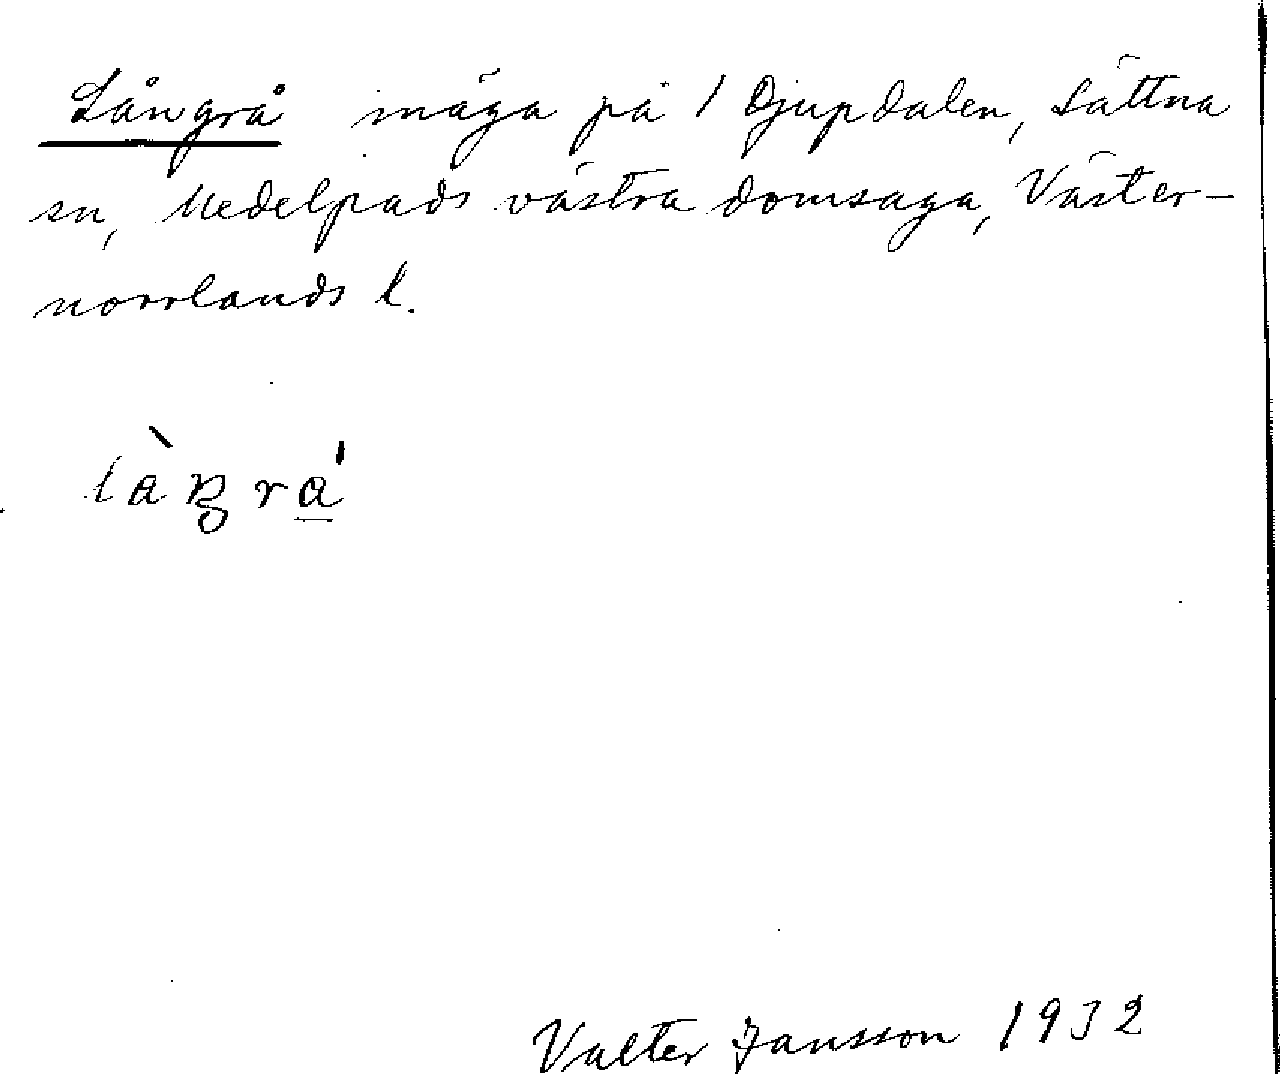 Långrå mäga på 1 Djupdalen, Sättna
sn, Medelpads västra domsaga, Väster-
norrlands l.
làŋrá
Valter Jansson 1932